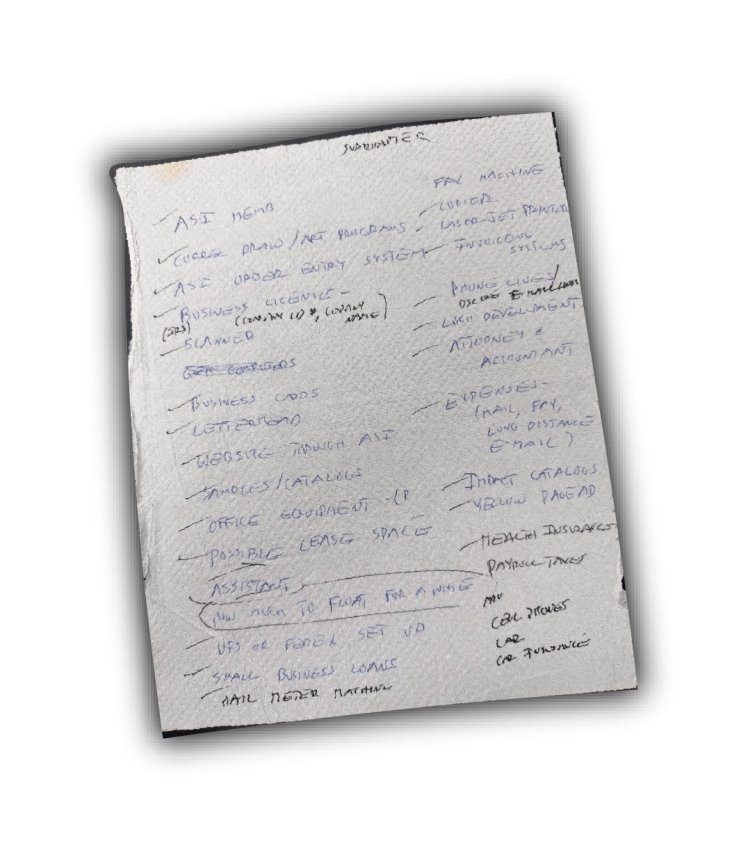 ASI MEMB
COREL DRAW/ART PROGRAMS
ASI ORDER ENTRY SYSTEM
BUSINESS LICENSE -
(IRS) (COMPANY ID #, COMPANY NAME)
SCANNER
BUSINESS CARDS
LETTERHEAD
WEBSITE THROUGH ASI
SAMPLES/CATALOGS
OFFICE EQUIPMENT -
POSSIBLE LEASE SPACE
ASSISTANT
HOW MUCH TO FLOAT FOR A WHILE
UPS OR FEDEX SET UP
SMALL BUSINESS LOANS
MAIL METER MACHINE
FAX MACHINE
COPIER
LASER-JET PRINTER
INVOICING
SYSTEMS
PHONE LINES/
DSL LINE E-MAIL
LOGO DEVELOPMENT
ATTORNEY &
ACCOUNTANT
EXPENSES -
(MAIL, FAX,
LONG DISTANCE
E-MAIL)
IMPACT CATALOGS
YELLOW PAGE AD
HEALTH INSURANCE
PAYROLL TAXES
CELL PHONES
CAR
CAR INSURANCE